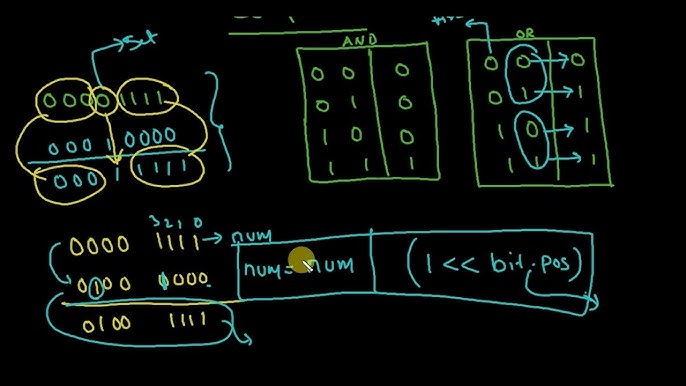 set
0000 1111
0001 0000
0001 1111
AND
0 0 0
0 1 0
1 0 0
1 1 1
OR
0 0 0
0 1 1
1 0 1
1 1 1
3210
0000 1111 num
0100 0000
0100 1111
num = num | (1 << bit.pos)